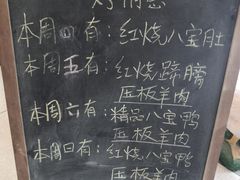 好消息
本周四有：红烧八宝肚
本周五有：红烧蹄膀
压板羊肉
本周六有：精品八宝鸭
压板羊肉
本周日有：红烧八宝鸭
压板羊肉